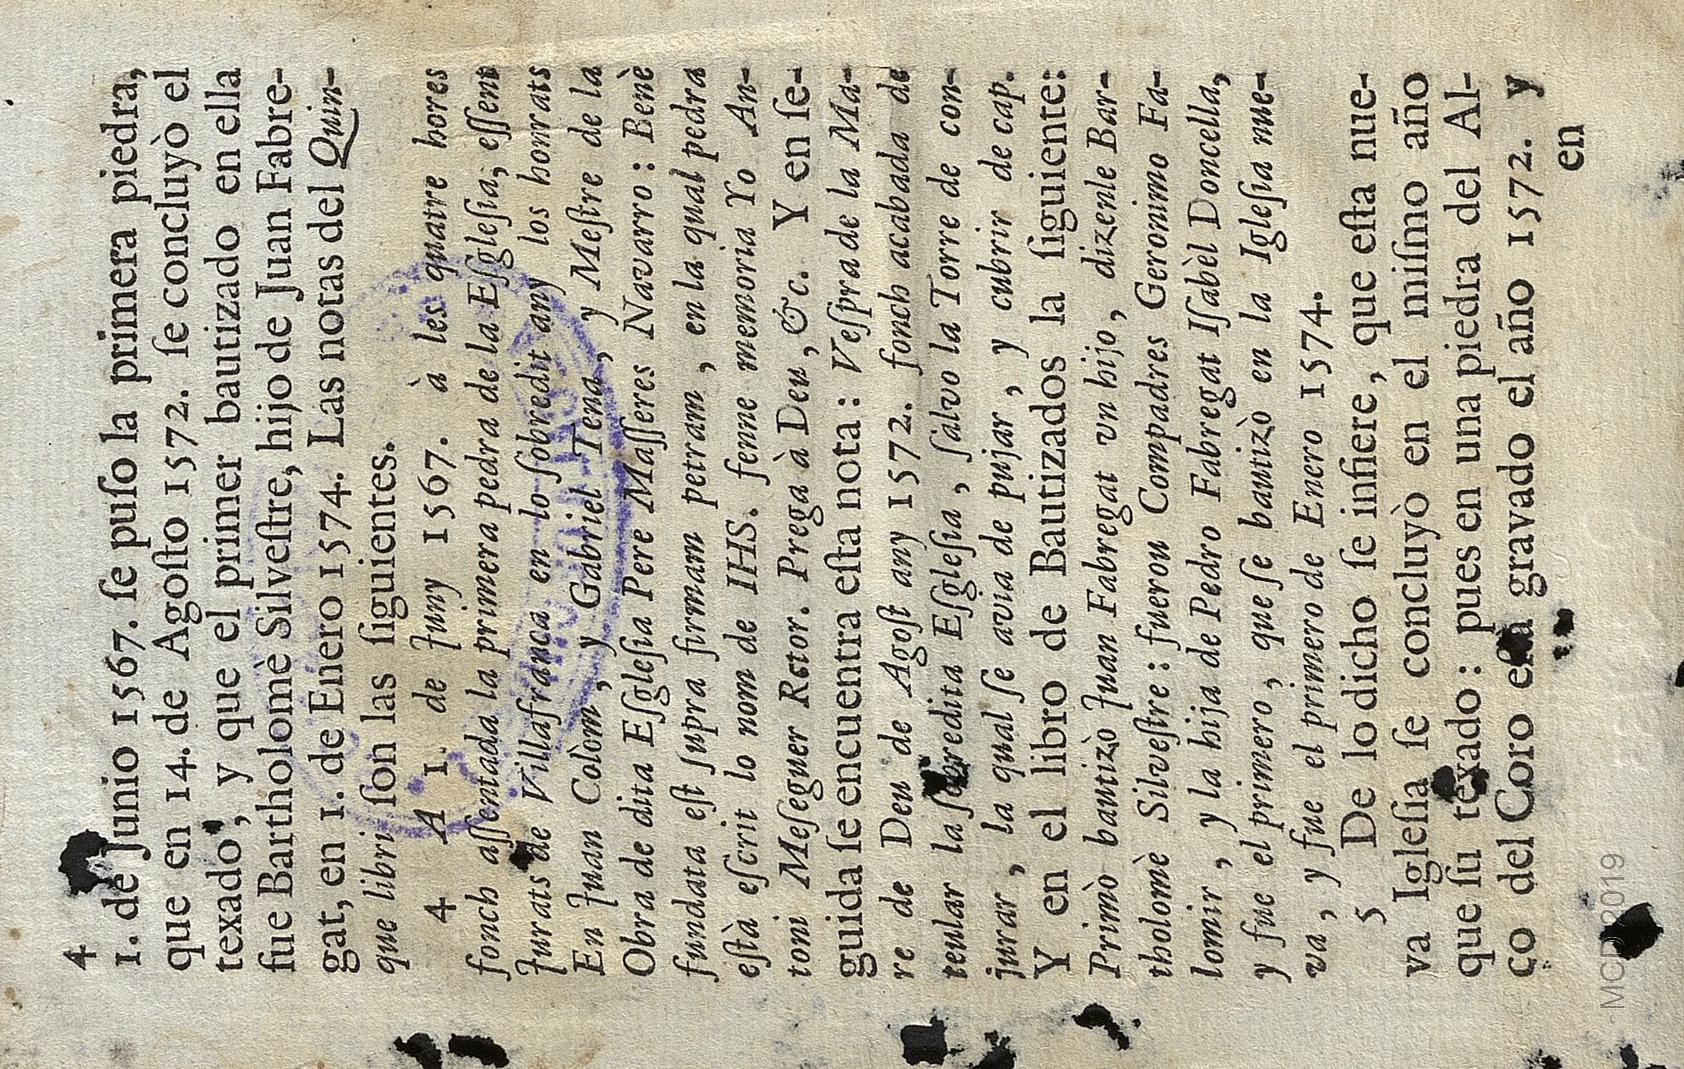 4
1. de Junio 1567. ſe puſo la primera piedra,
que en 14. de Agoſto 1572. ſe concluyò el
texado, y que el primer bautizado en ella
fue Bartholomè Silveſtre, hijo de Juan Fabre-
gat, en 1. de Enero 1574. Las notas del Quin-
que libri ſon las ſiguientes.
4 A 1. de Juny 1567. à les quatre hores
fonch aſſentada la primera pedra de la Eſgleſia, eſſent
Jurats de Villafranca en lo ſobredit any los honrats
En Juan Colòm, y Gabriel Tena, y Meſtre de la
Obra de dita Eſgleſia Pere Maſſeres Navarro: Benè
fundata eſt ſupra firmam petram, en la qual pedra
eſtà eſcrit lo nom de IHS. fenne memoria Yo An-
toni Meſeguer Rector. Prega à Deu, &c. Y en ſe-
guida ſe encuentra eſta nota: Veſpra de la Ma-
re de Deu de Agoſt any 1572. fonch acabada de
teular la ſobredita Eſgleſia, ſalvo la Torre de con-
jurar, la qual ſe avia de pujar, y cubrir de cap.
Y en el libro de Bautizados la ſiguiente:
Primò bautizò Juan Fabregat vn hijo, dizenle Bar-
tholomè Silveſtre: fueron Compadres Geronimo Fa-
lomir, y la hija de Pedro Fabregat Iſabèl Doncella,
y fue el primero, que ſe bautizò en la Igleſia nue-
va, y fue el primero de Enero 1574.
5 De lo dicho ſe infiere, que eſta nue-
va Igleſia ſe concluyò en el miſmo año
que ſu texado: pues en una piedra del Al-
ço del Coro eſtà gravado el año 1572. y
en
MCD 2019